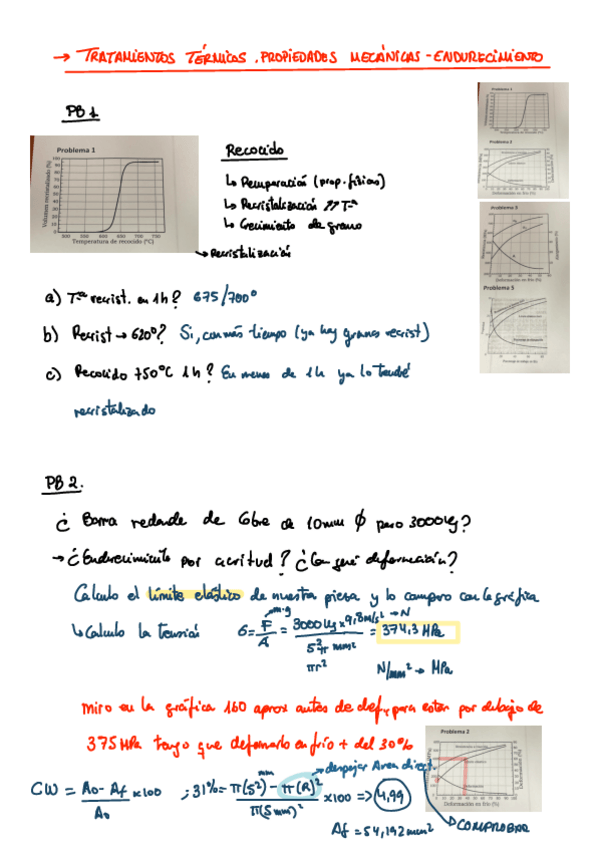 → TRATAMIENTOS TÉRMICOS. PROPIEDADES MECÁNICAS - ENDURECIMIENTO
PB 1
Problema 1
Volumen recristalizado (%)
100
90
80
70
60
50
40
30
20
10
0
500 550 600 650 700 750
Temperatura de recocido (°C)
Recocido
↳ Recuperación (prop. físicas)
↳ Recristalización
↳ Crecimiento de grano
→ Recristalización
Problema 1
Problema 2
Problema 3
Problema 3
a) Tª recrist. en 1h? 675/700°
b) Recrist → 620°? Si, con más tiempo (ya hay granos recrist)
c) Recocido 750°C 1h? En menos de 1h ya lo tendré
recristalizado
PB 2.
¿ Barra redonda de Cobre de 10mm ϕ peso 3000kg?
→ ¿Endurecimiento por acritud? ¿Con qué deformación?
Calculo el límite elástico de nuestra pieza y lo comparo con la gráfica
↳ Calculo la tensión σ = F/A = 3000kg × 9,8m/s² / 5²π mm² = 374,3 MPa
m·g
→ N
πr²
N/mm² → MPa
Miro en la gráfica 160 aprox antes de def, y para estar por debajo de
375 MPa tengo que deformarlo en frío + del 30%
Problema 2
Deformación en frío (%)
CW = A₀ - Af / A₀ × 100 ; 31% = π(5²) - π(R)² / π(5mm)² × 100 => 4,99
mm
despejar Area direct.
Af = 54,192 mm²
COMPROBAR